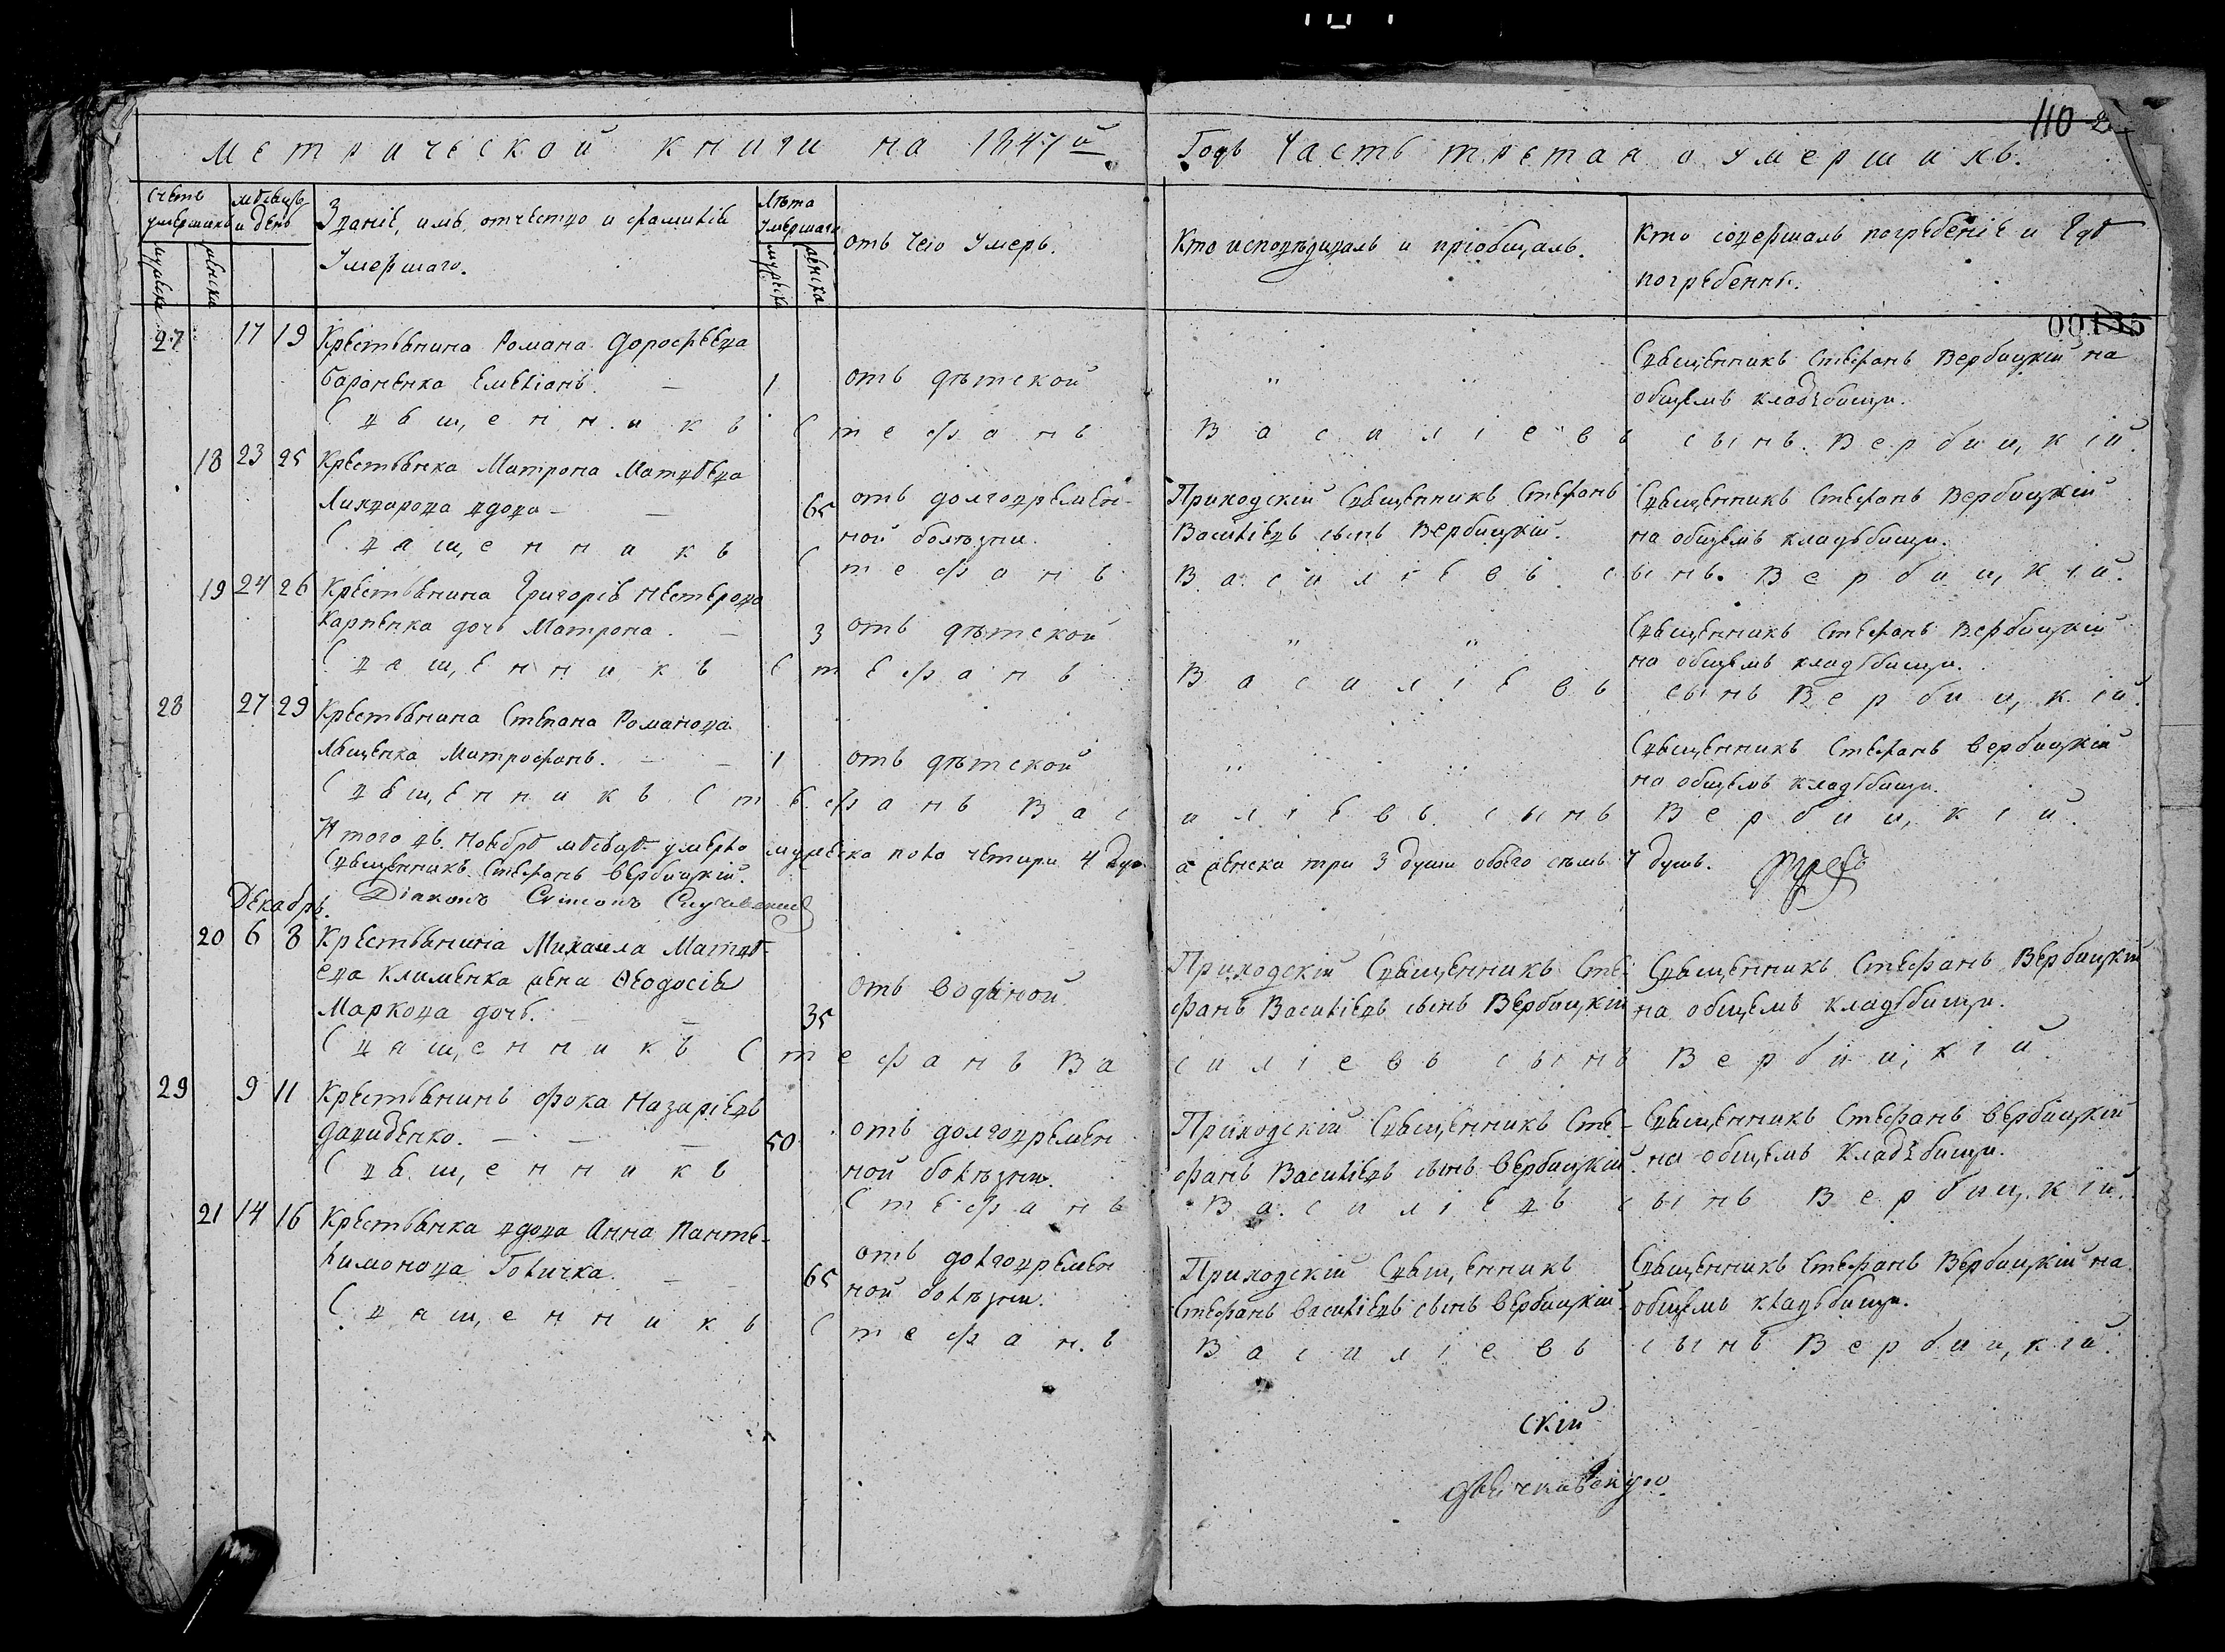 110
Метрической книги на 1847й Годъ Часть третая о умершихъ.
Счетъ умершихъ
мужеска
женска
мѣсяцъ и день
Званіе, имя, отчество и фамилія
Умершаго.
Лѣта Умершаго
мужеска
женска
отъ чего Умеръ.
Кто исповѣдивалъ и пріобщалъ.
Кто совершалъ погребеніе и Гдѣ
погребенны.
00135
27 17 19 Крестьянина Романа Дорофѣева
Бараненка Емеліанъ. — 1 отъ дѣтской " "
Священникъ Стефанъ Вербицкій на
общемъ кладъбищи.
Священникъ Стефанъ Василіевъ сынъ Вербицкій.
18 23 25 Крестьянка Матрона Матвѣева
Лихварова вдова — — 65 отъ долговремен-
ной болѣзни.
Приходскій Священникъ Стефанъ
Василіевъ сынъ Вербицкій.
Священникъ Стефанъ Вербицкій
на общемъ кладъбищи.
Священникъ Стефанъ Василіевъ сынъ Вербицкій.
19 24 26 Крестьянина Григорія Нестерова
Карпенка дочь Матрона. — 3 отъ дѣтской " "
Священникъ Стефанъ Вербицкій
на общемъ кладбищи.
Священникъ Стефанъ Василіевъ сынъ Вербицкій.
28 27 29 Крестьянина Степана Романова
Лященка Митрофанъ. — — 1 отъ дѣтской " "
Священникъ Стефанъ Вербицкій
на общемъ кладбищи.
Священникъ Стефанъ Василіевъ сынъ Вербицкій.
Итого въ Ноябрѣ мѣсяцѣ умерло мужеска пола четири 4 Душ а женска три 3 души обоего съемъ 7 душъ.
Священникъ Стефанъ Вербицкій.
Діаконъ Симонъ
Декабрь.
20 6 8 Крестьянина Михаила Матвѣ-
ева Клименка жена Ѳеодосія
Маркова дочь. — — 35 отъ водяной.
Приходскій Священникъ Сте-
фанъ Василіевъ сынъ Вербицкій
Священникъ Стефанъ Вербицкій
на общемъ кладбищи.
Священникъ Стефанъ Василіевъ сынъ Вербицкій
29 9 11 Крестьянинъ Фока Назаріевъ
Давиденко. — — — 50 отъ долговремен
ной болѣзни.
Приходскій Священникъ Сте-
фанъ Василіевъ сынъ Вербицкій.
Священникъ Стефанъ Вербицкій
на общемъ кладъбищи.
Священникъ Стефанъ Василіевъ сынъ Вербицкій.
21 14 16 Крестьянка вдова Анна Панте-
лимонова Голичка. — — 65 отъ долговремен
ной болѣзни.
Приходскій Священникъ
Стефанъ Василіевъ сынъ Вербицкій.
Священникъ Стефанъ Вербицкій на
общемъ кладъбищи.
Священникъ Стефанъ Василіевъ сынъ Вербицкій.
скій